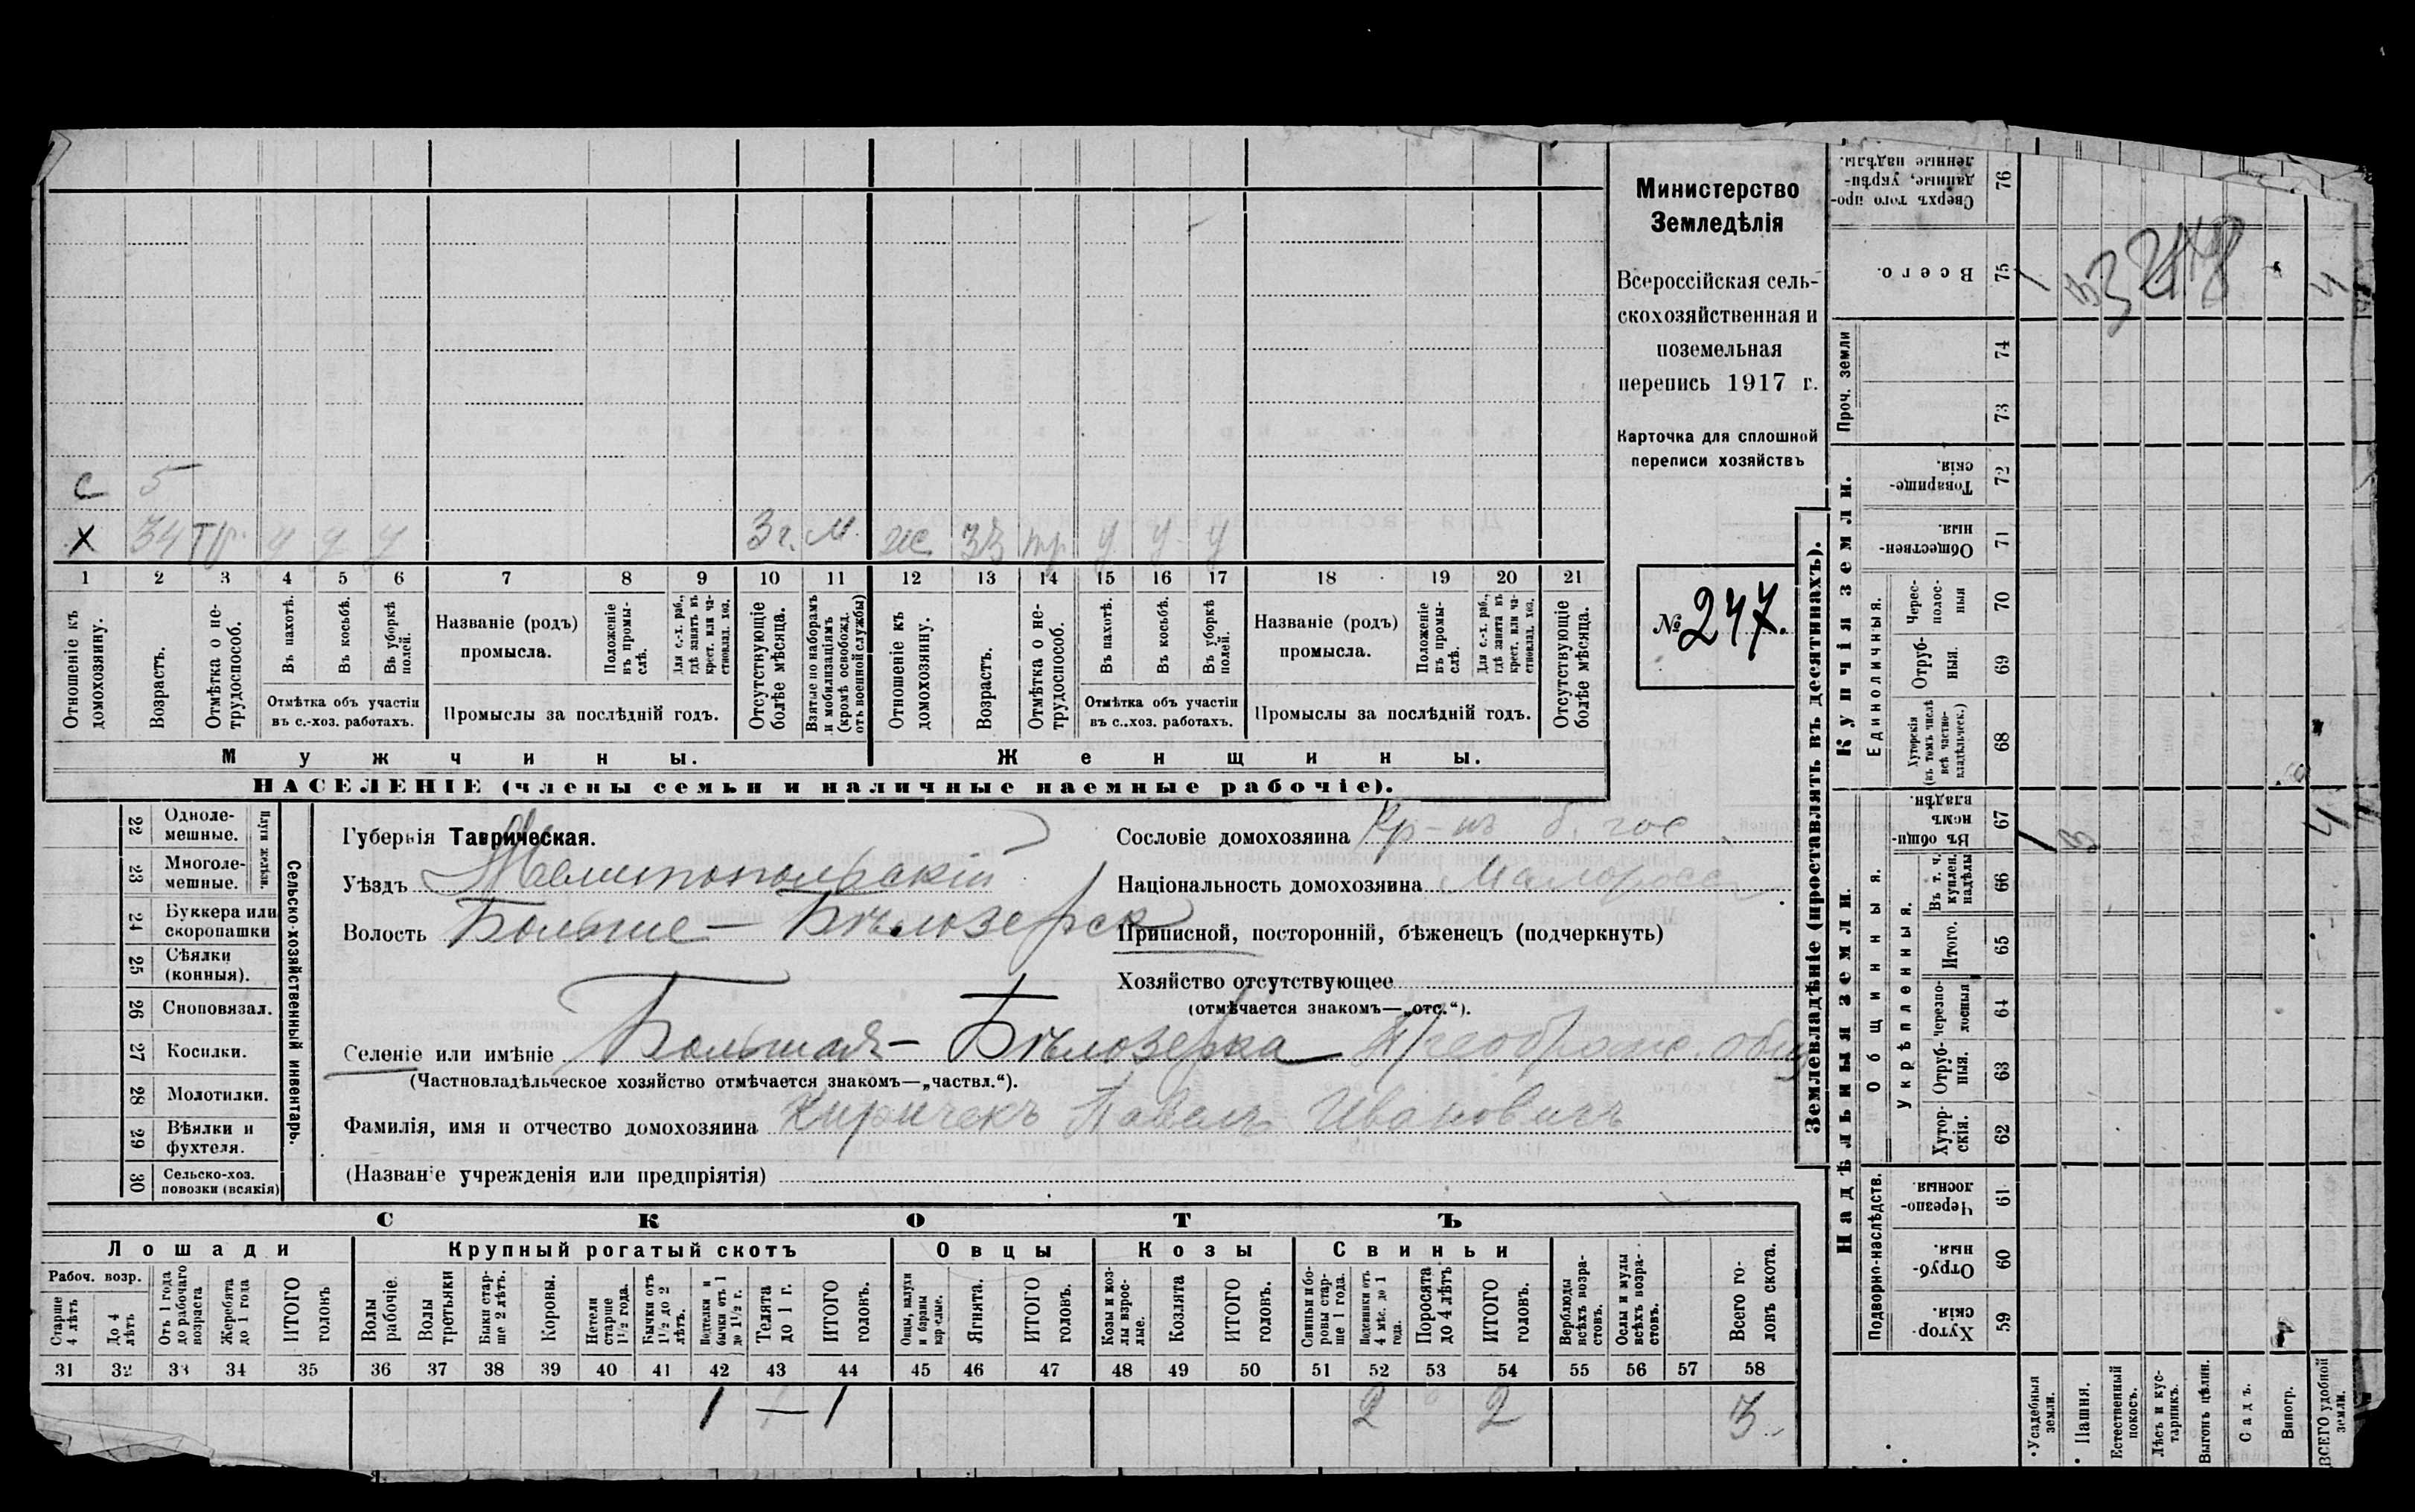 С 5
X 34 тр. у у у 3 г. м. ж 33 тр у у у
1 2 3 4 5 6 7 8 9 10 11 12 13 14 15 16 17 18 19 20 21
Отношеніе къ домохозяину.
Возрастъ.
Отмѣтка о не-трудоспособ.
Въ пахотѣ.
Въ косьбѣ.
Въ уборкѣ полей.
Отмѣтка объ участіи
въ с.-хоз. работахъ.
Названіе (родъ)
промысла.
Положеніе въ промы-слѣ.
Для с.-х. раб., гдѣ занятъ въ крест. или ча-стновлад. хоз.
Промыслы за послѣдній годъ.
Отсутствующіе болѣе мѣсяца.
Взятые по наборамъ и мобилизаціямъ (кромѣ освобожд. отъ военной службы)
Отношеніе къ домохозяину.
Возрастъ.
Отмѣтка о не-трудоспособ.
Въ пахотѣ.
Въ косьбѣ.
Въ уборкѣ полей.
Отмѣтка объ участіи
въ с.-хоз. работахъ.
Названіе (родъ)
промысла.
Положеніе въ промы-слѣ.
Для с.-х. раб., гдѣ занята въ крест. или ча-стновлад. хоз.
Промыслы за послѣдній годъ.
Отсутствующіе болѣе мѣсяца.
Мужчины.
Женщины.
НАСЕЛЕНІЕ (члены семьи и наличные наемные рабочіе).
Министерство
Земледѣлія
Всероссійская сель-
скохозяйственная и
поземельная
перепись 1917 г.
Карточка для сплошной
переписи хозяйствъ
№ 247.
22 Одноле-мешные.
23 Многоле-мешные.
Плуги желѣзн.
24 Буккера или скоропашки
25 Сѣялки (конныя).
26 Сноповязал.
27 Косилки.
28 Молотилки.
29 Вѣялки и фухтеля.
30 Сельско-хоз. повозки (всякія)
Сельско-хозяйственный инвентарь.
Губернія Таврическая.
Уѣздъ Мелитопольскій
Волость Больше-Бѣлозерск
Селеніе или имѣніе Большая-Бѣлозерка Преображ. общ
(Частновладѣльческое хозяйство отмѣчается знакомъ—„частвл.“).
Фамилія, имя и отчество домохозяина Киричекъ Павелъ Ивановичъ
(Названіе учрежденія или предпріятія)
Сословіе домохозяина Кр-нъ б. гос
Національность домохозяина Малоросс
Приписной, посторонній, бѣженецъ (подчеркнуть)
Хозяйство отсутствующее
(отмѣчается знакомъ—„отс.“).
СКОТЪ
Лошади
Крупный рогатый скотъ
Овцы
Козы
Свиньи
Рабоч. возр.
Старше 4 лѣтъ
До 4 лѣтъ
Отъ 1 года до рабочаго возраста
Жеребята до 1 года
ИТОГО головъ
Волы рабочіе.
Волы третьяки
Быки стар-ше 2 лѣтъ.
Коровы.
Нетели старше 1½ года.
Бычки отъ 1½ до 2 лѣтъ.
Подтелки и бычки отъ 1 до 1½ г.
Телята до 1 г.
ИТОГО головъ.
Овцы, валухи и бараны взрослые.
Ягнята.
ИТОГО головъ.
Козы и коз-лы взрос-лые.
Козлята
ИТОГО головъ.
Свиньи и бо-ровы стар-ше 1 года.
Подсвинки отъ 4 мѣс. до 1 года.
Поросята до 4 лѣтъ
ИТОГО головъ.
Верблюды всѣхъ возра-стовъ.
Ослы и мулы всѣхъ возра-стовъ.
Всего го-ловъ скота.
31 32 33 34 35 36 37 38 39 40 41 42 43 44 45 46 47 48 49 50 51 52 53 54 55 56 57 58
1 — 1 2 2 3
Землевладѣніе (проставлять въ десятинахъ).
Сверхъ того про-данные, укрѣп-ленные надѣлы. 76
Всего. 75
Проч. земли
74
73
Купчія земли.
Товарище-скія. 72
Обществен-ныя 71
Единоличныя.
Черес-полос-ныя 70
Отруб-ныя. 69
Хуторскія (въ томъ числѣ всѣ частно-владѣльческ.) 68
Надѣльныя земли.
Общинныя.
Въ общи-номъ владѣн. 67
Укрѣпленныя.
Въ т. ч. куплен. надѣлы 66
Итого. 65
Черезпо-лосныя 64
Отруб-ныя. 63
Хутор-скія. 62
Подворно-наслѣдств.
Черезпо-лосныя. 61
Отруб-ныя. 60
Хутор-скія. 59
Усадебныя земли.
Пашня.
Естественный покосъ.
Лѣсъ и кус-тарникъ.
Выгонъ цѣлин.
Садъ.
Виногр.
ВСЕГО удобной земли.
1 3 4
1 3 4